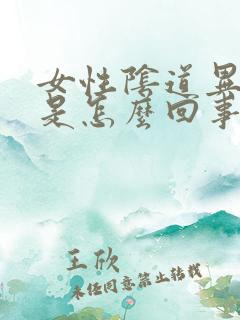 女性陰道異
是怎麼回事
王欣
未经同意禁止转载